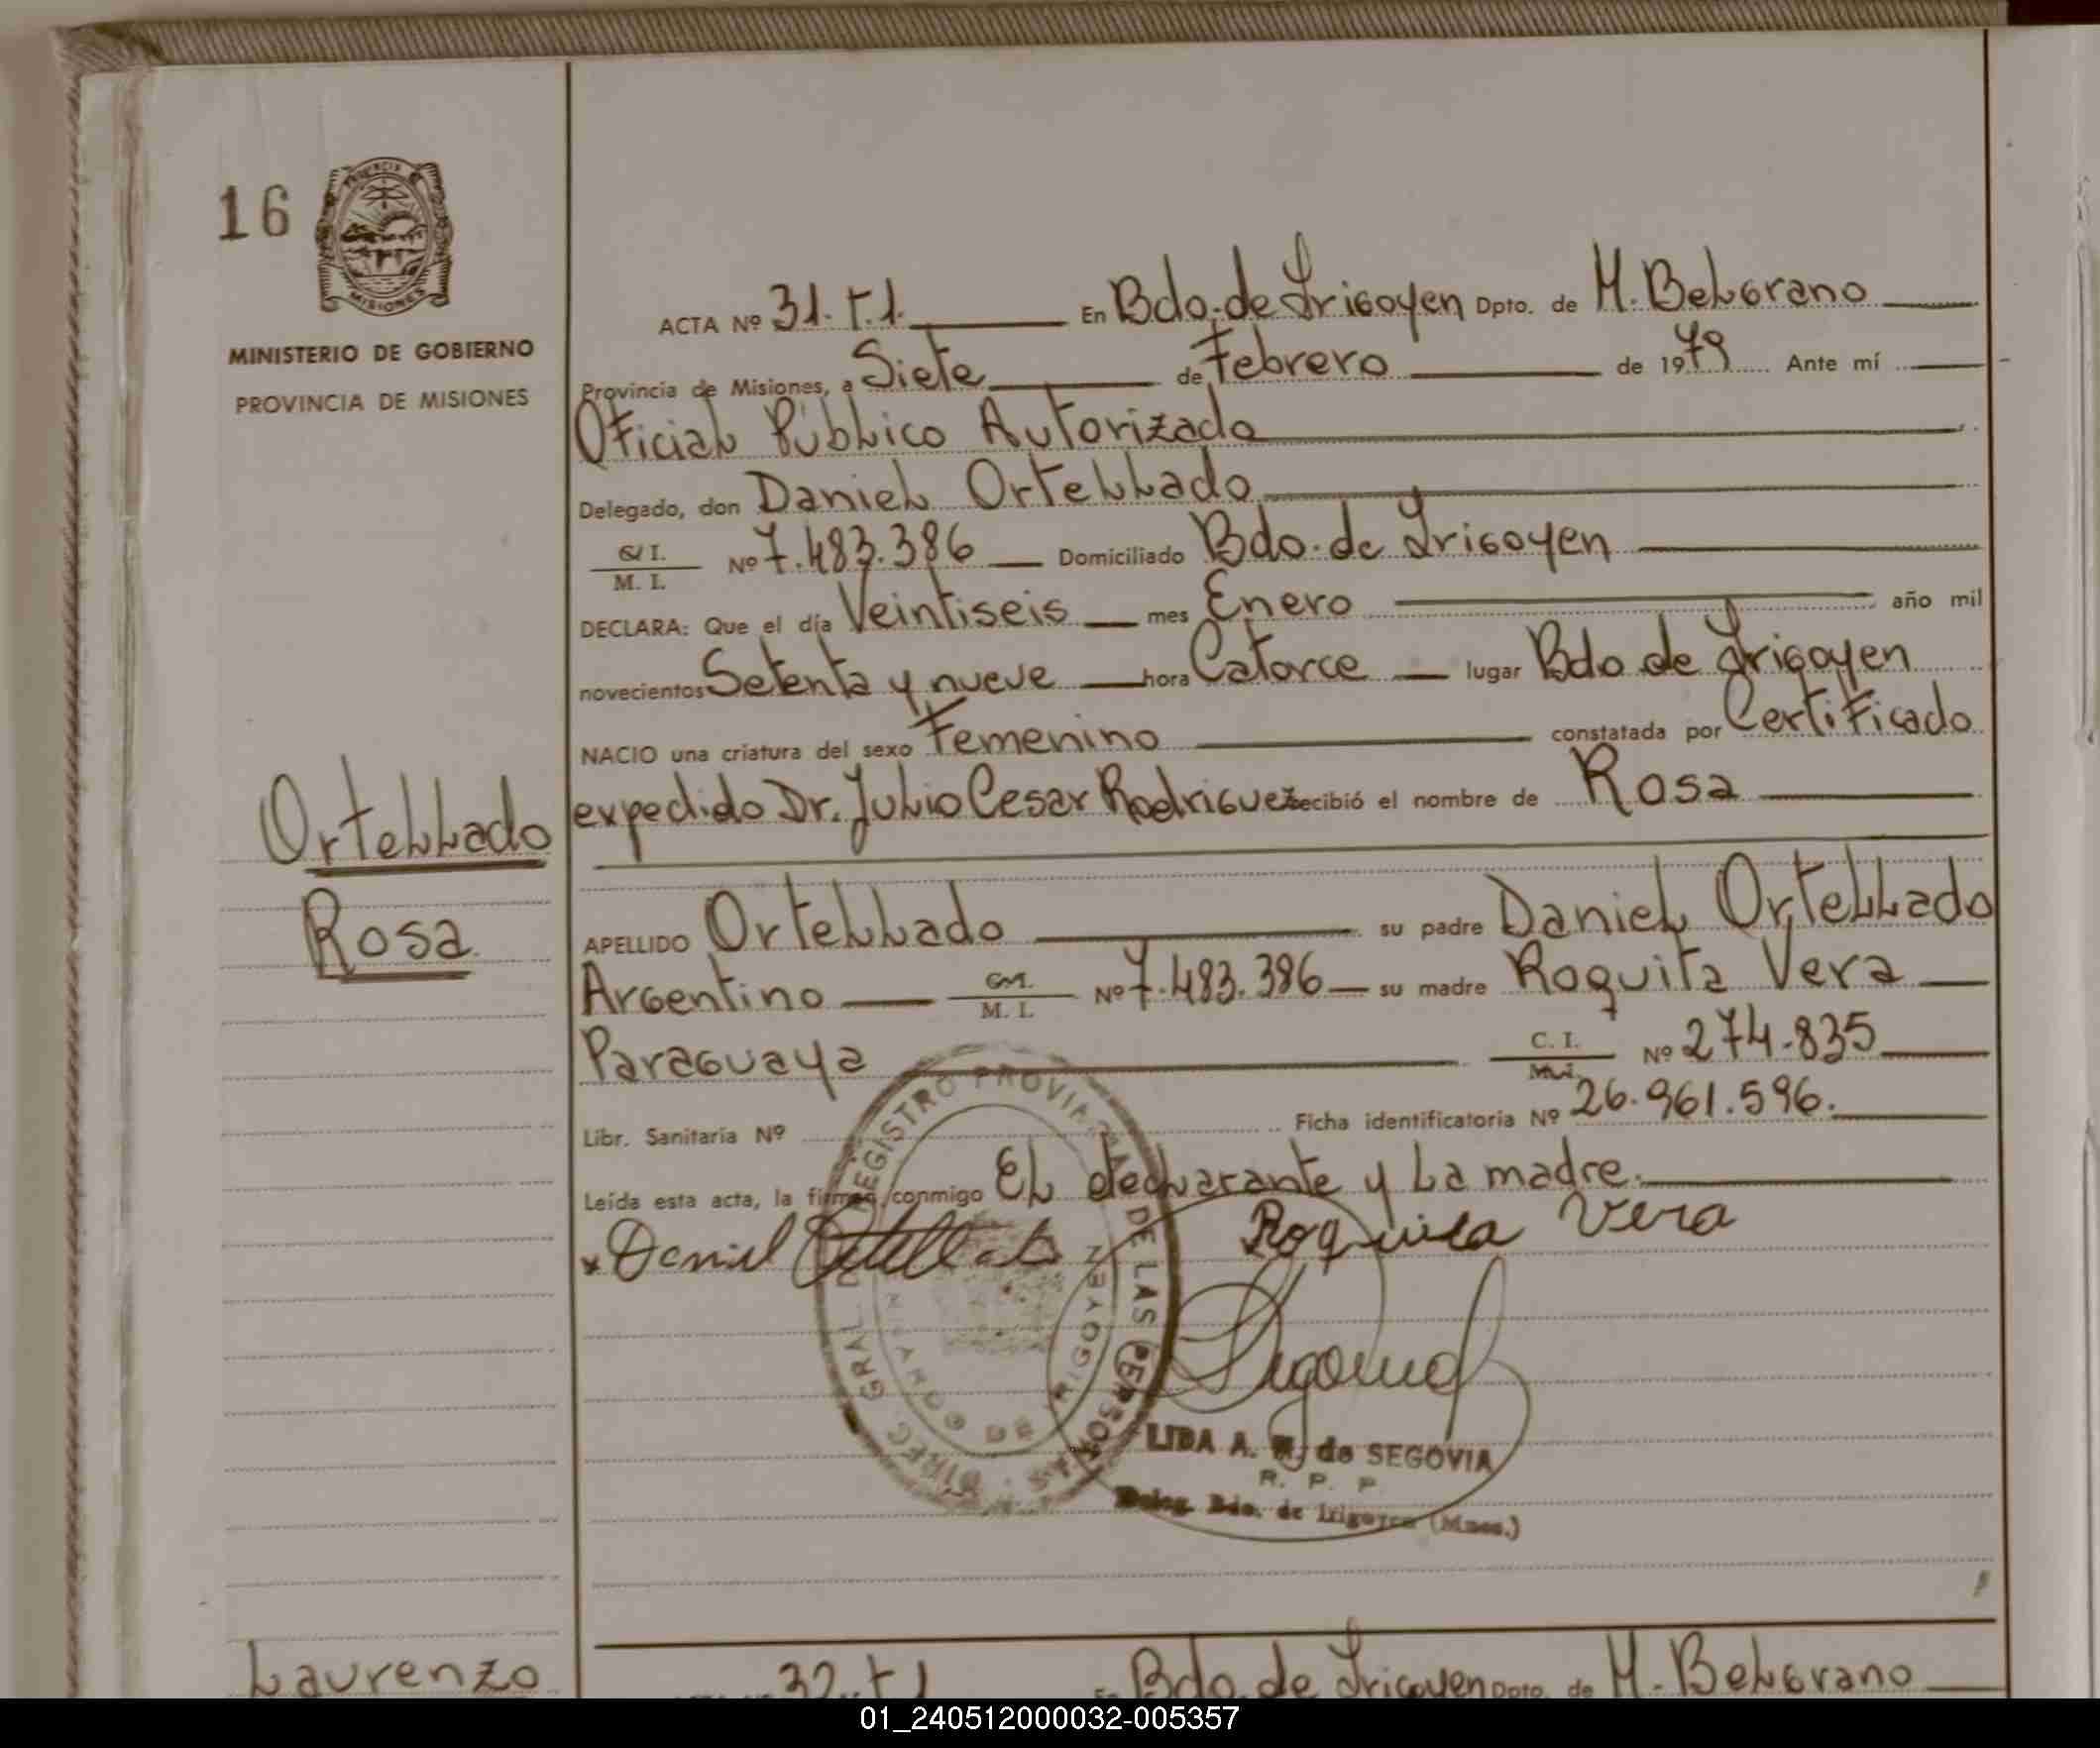 16
PROVINCIA
MISIONES
MINISTERIO DE GOBIERNO
PROVINCIA DE MISIONES
ACTA Nº 31. t.1. En Bdo. de Irigoyen Dpto. de M. Belgrano
Provincia de Misiones, a Siete de Febrero de 1979 Ante mí
Oficial Público Autorizado
Delegado, don Daniel Ortellado
M. I. Nº 7.483.386 Domiciliado Bdo. de Irigoyen
DECLARA: Que el día Veintiseis mes Enero año mil
novecientos Setenta y nueve hora Catorce lugar Bdo de Irigoyen
NACIO una criatura del sexo Femenino constatada por Certificado
expedido Dr. Julio Cesar Rodriguez recibió el nombre de Rosa
Ortellado
Rosa
APELLIDO Ortellado su padre Daniel Ortellado
Argentino M. I. Nº 7.483.386 su madre Roquita Vera
Paraguaya C. I. Nº 274.835
Libr. Sanitaria Nº Ficha identificatoria Nº 26.961.596.
Leída esta acta, la firman conmigo El declarante y La madre.
x Daniel Ortellado Roquita Vera
DIREC. GRAL. REGISTRO PROVINCIAL DE LAS PERSONAS
DE IRIGOYEN
LIDA A. M. de SEGOVIA
R. P. P.
Deleg. Bdo. de Irigoyen (Mnes.)
Laurenzo
32. t1 En Bdo. de Irigoyen Dpto. de M. Belgrano
01_240512000032-005357